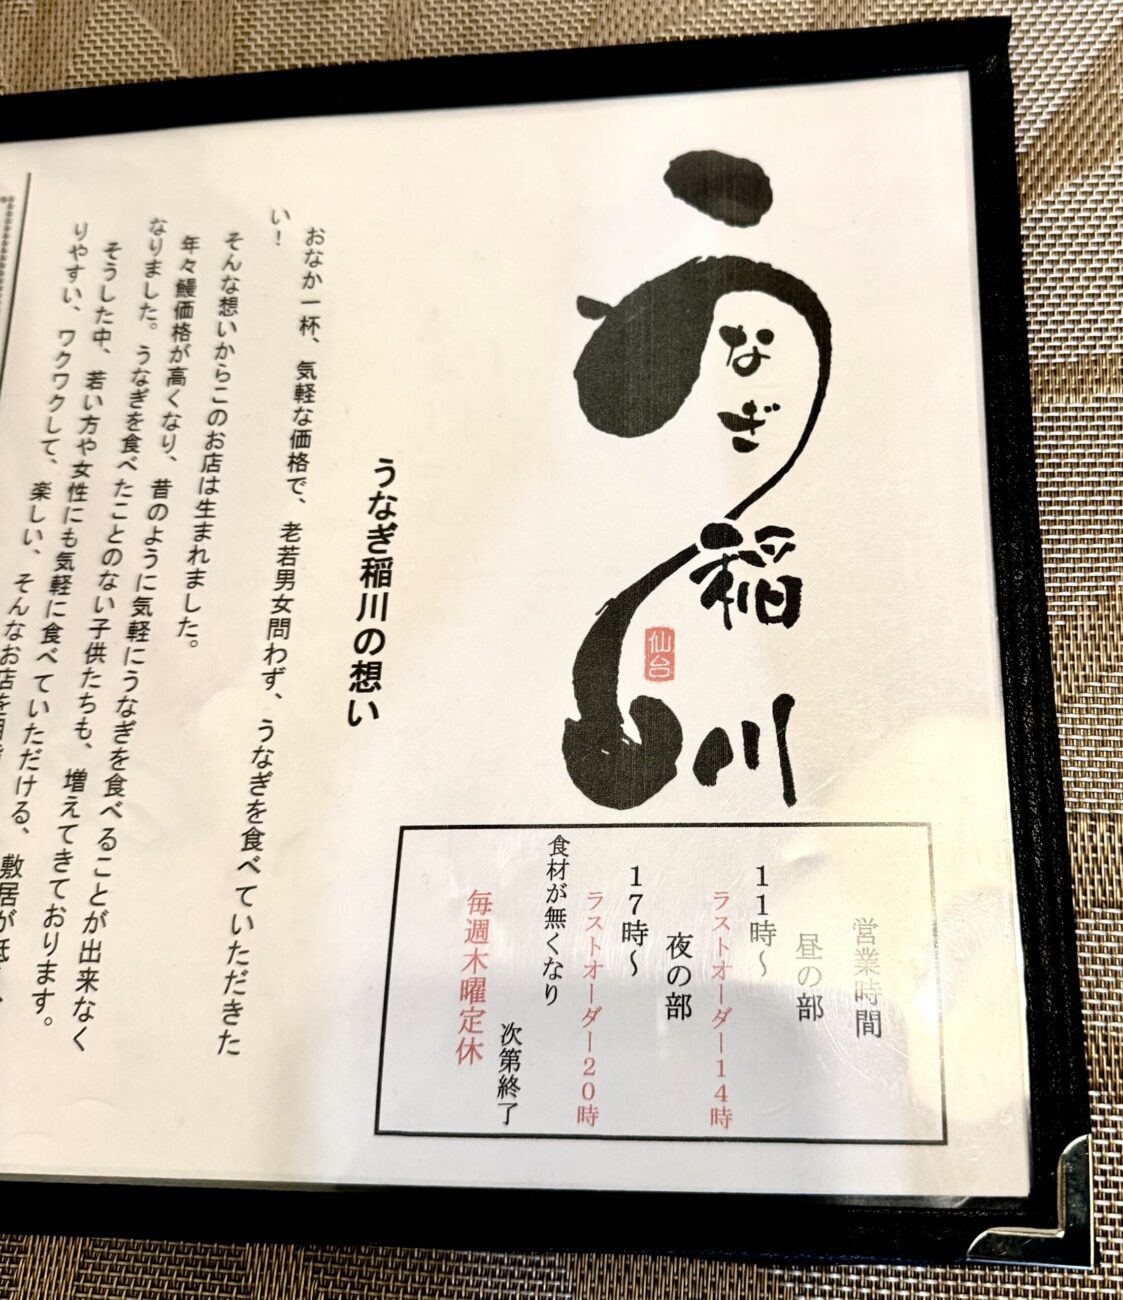 うなぎ
稲川
仙台
営業時間
昼の部
11時～
ラストオーダー14時
夜の部
17時～
ラストオーダー20時
食材が無くなり
次第終了
毎週木曜定休
うなぎ稲川の想い
おなか一杯、気軽な価格で、老若男女問わず、うなぎを食べていただきた
い！
そんな想いからこのお店は生まれました。
年々鰻価格が高くなり、昔のように気軽にうなぎを食べることが出来なく
なりました。うなぎを食べたことのない子供たちも、増えてきております。
そうした中、若い方や女性にも気軽に食べていただける、敷居が低く、
りやすい、ワクワクして、楽しい、そんなお店を